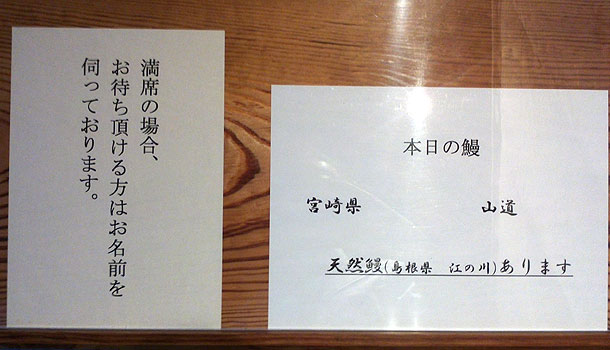 満席の場合、
お待ち頂ける方はお名前を
伺っております。
本日の鰻
宮崎県 山道
天然鰻(島根県 江の川)あります